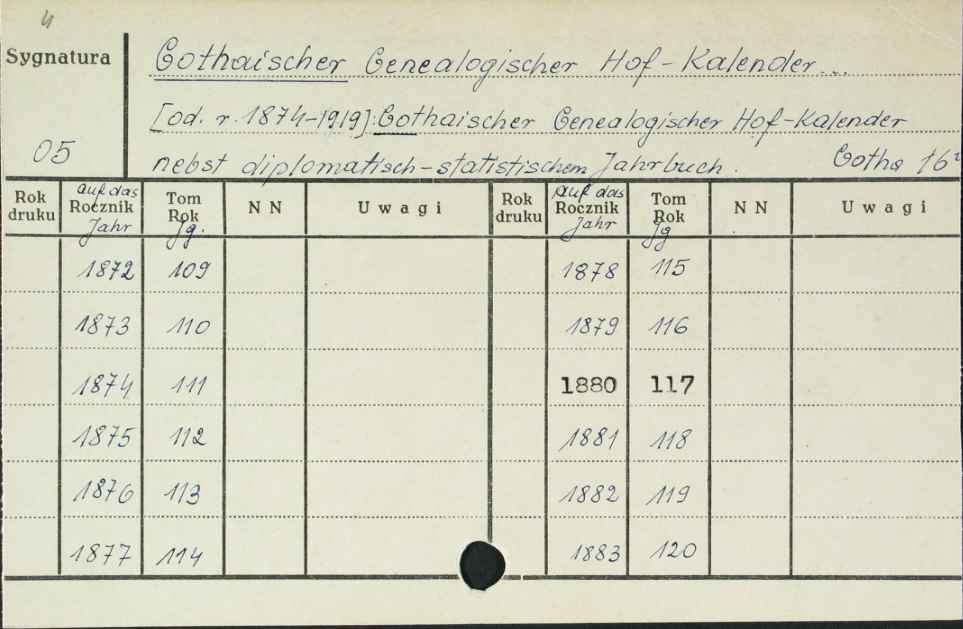 4
Sygnatura Gothaischer Genealogischer Hof-Kalender...
[od. r. 1874-1919]: Gothaischer Genealogischer Hof-Kalender
05 nebst diplomatisch-statistischem Jahrbuch. Gotha 16°
Rok druku auf das Rocznik Jahr Tom Rok Jg. NN Uwagi Rok druku auf das Rocznik Jahr Tom Rok Jg NN Uwagi
1872 109 1878 115
1873 110 1879 116
1874 111 1880 117
1875 112 1881 118
1876 113 1882 119
1877 114 1883 120